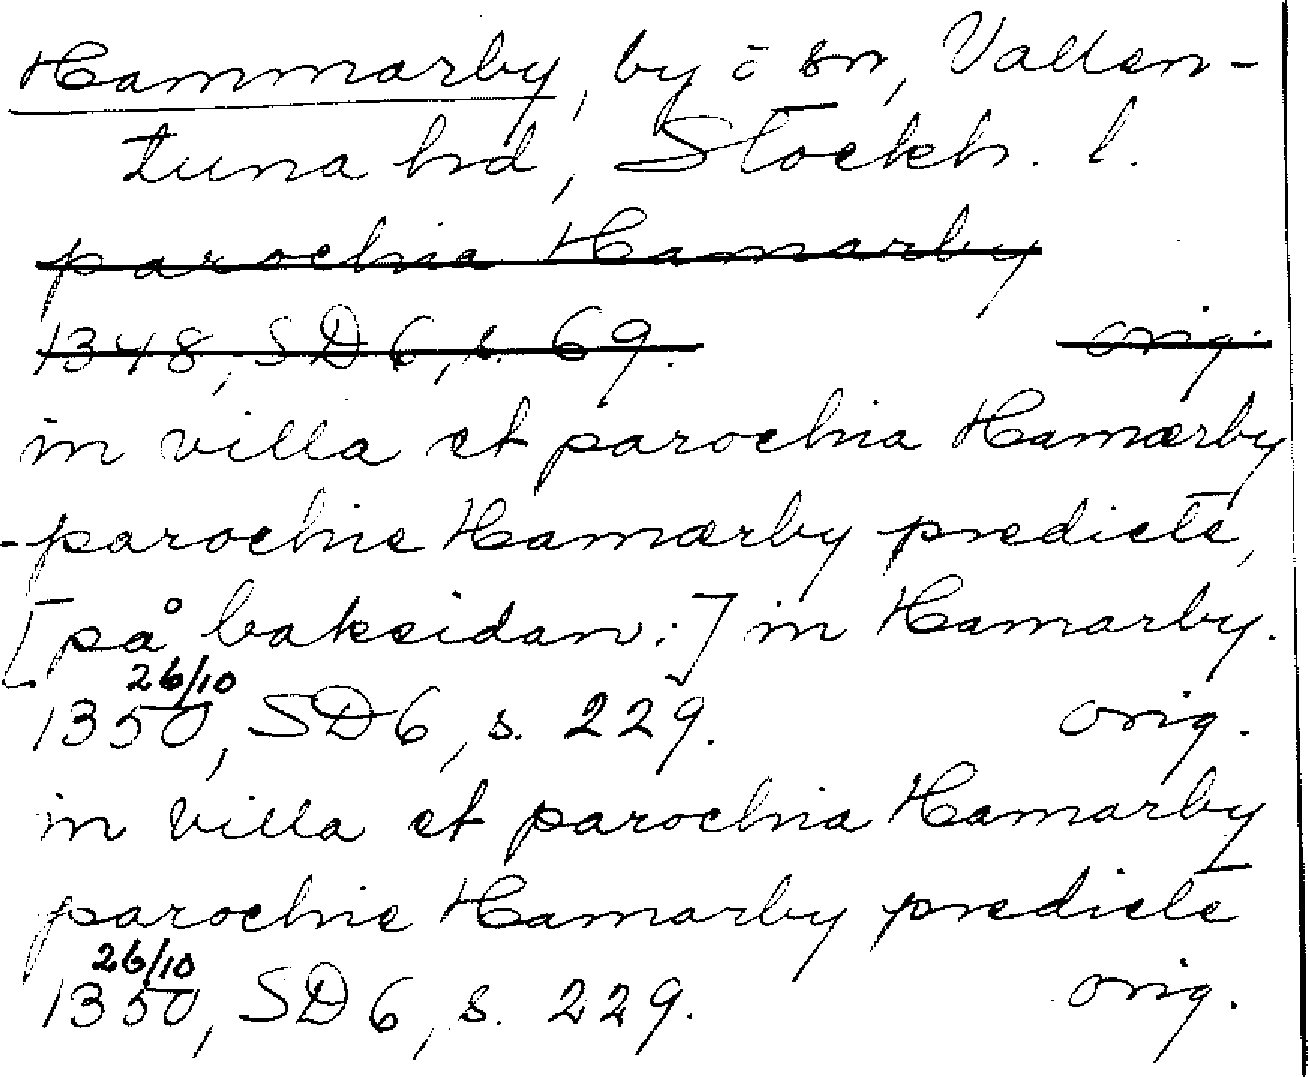 Hammarby, by o sn, Vallen-
tuna hd, Stockh. l.
parochia Hamarby
1348, SD 6, s. 69. orig.
in villa et parochia Hamærby
parochie Hamærby predicte,
[på baksidan:] in Hamarby.
26/10
1350, SD 6, s. 229. orig.
in villa et parochia Hamarby
parochie Hamarby predicte
26/10
1350, SD 6, s. 229. orig.